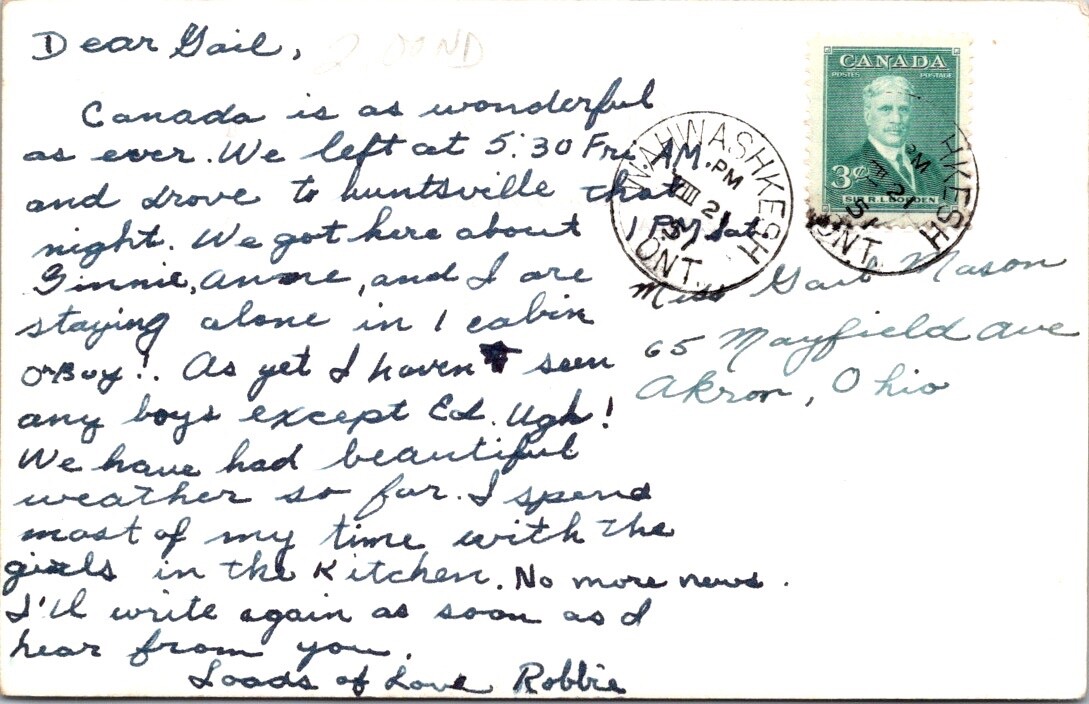 Dear Gail,
Canada is as wonderful
as ever. We left at 5:30 Fri AM
and drove to Huntsville that
night. We got here about 1 PM Sat.
Ginnie, Anne, and I are
staying alone in 1 cabin
O-Boy!. As yet I haven't seen
any boys except Ed. Ugh!
We have had beautiful
weather so far. I spend
most of my time with the
girls in the kitchen. No more news.
I'll write again as soon as I
hear from you.
Loads of Love Robbie
CANADA
POSTES POSTAGE
3¢
SIR R.L. BORDEN
WAHWASHKESH
PM
VIII 21
51
ONT.
HKESH
PM
VIII 21
51
ONT.
Miss Gail Mason
65 Mayfield Ave
Akron, Ohio